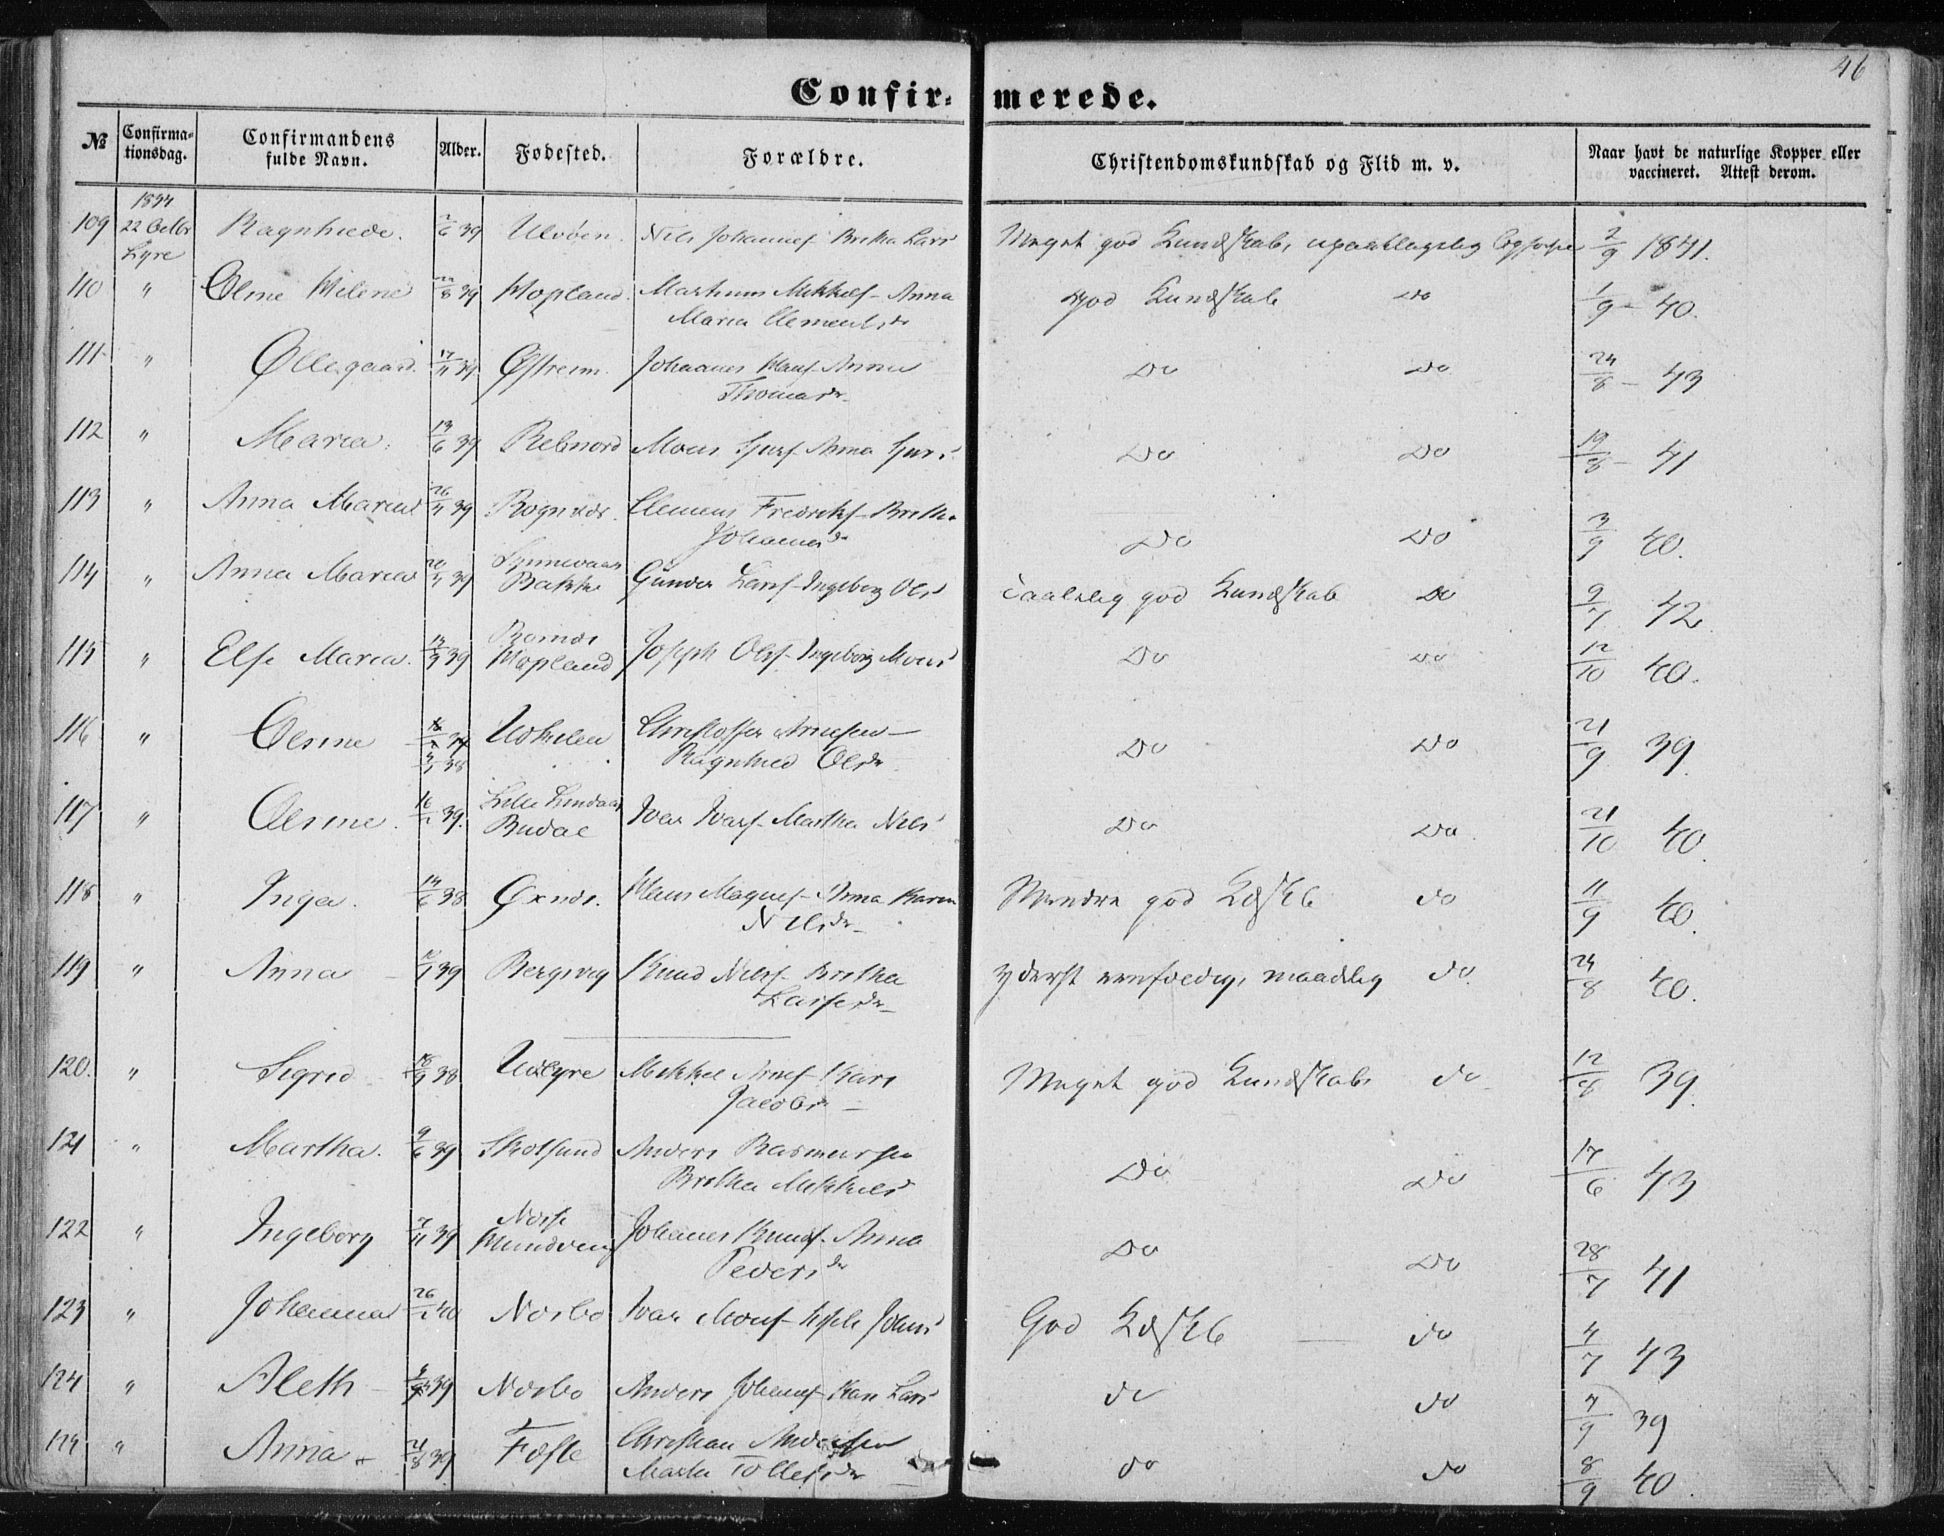 46
Confir- merede.
№ Confirma-tionsdag. Confirmandens fulde Navn. Alder. Fødested. Forældre. Christendomskundskab og Flid m. v. Naar havt de naturlige Kopper eller vaccineret. Attest derom.
1854
109 22 Octbr Ragnhilde. 39 Ulvøen. Nils Johannes Britha Lars Meget god Kundskab, upaaklagelig 2/9 1841.
Lyre
110 " Oline Helene 39 Hopland. Marthinus Mikkels- Anna God Kundskab Do 1/9 - 40.
Maria Clements dr
111 " Øllegaard. 39 Østreim. Johannes Hans Anna Do Do 24/8 - 43
Thomas dr
112 " Maria. 39 Rebnord Mons Anna Do Do 19/8 - 41
113 " Anna Maria 26/4 39 Rognvær. Clemens Fredriks- Britha
Johannes dr Do Do 3/9 40.
114 " Anna Maria 39 Synnevaag
Bakke Gunder Lars- Ingeborg Ols Taalelig god Kundskab Do 9/7 42.
115 " Else Maria. 39 Hopland Joseph Ols- Ingeborg Mons Do Do 12/10 40.
116 " Oline Christoffer Arnesen-
Ragnhild Ols dr Do Do 21/9 39
117 " Oline. 39. Lille Lindaas
Budal Ivar Ivars- Martha Nils Do Do 21/10 40.
118 " Inga. 14/6 38 Øxnds. Hans Magnes- Anna Karen Mindre god Kdskb do 11/9 40.
Nils dr-
119 " Anna - 39 Bergsvig Knud Niels- Britha yderst eenfoldig, maadelig do. 24/8 40.
Larses dr-
120. " Sigrid 38 Udlyre Mikkel Arnes- Kari
Jacobs - Meget god Kundskab do 12/8 39.
121 " Martha. 9/6 39 Skotsund Anders Rasmussen
Britha Mikkels Do Do 17/6 43
122 " Ingeborg 39 Nore
Mundveng Johannes Knuds- Anna
Peders dr Do Do 28/7 41
123 " Johanna 40 Norbø Ivar Mons- Johns God Kdskb - do 4/7 43
124 " Aleth - 39 Norbø Anders Johannes- Kari Lars do do 7/9 39
125 " Anna 21/8 39 Foste Christian Andersen
Marta Tollefs dr do do 8/9 40.